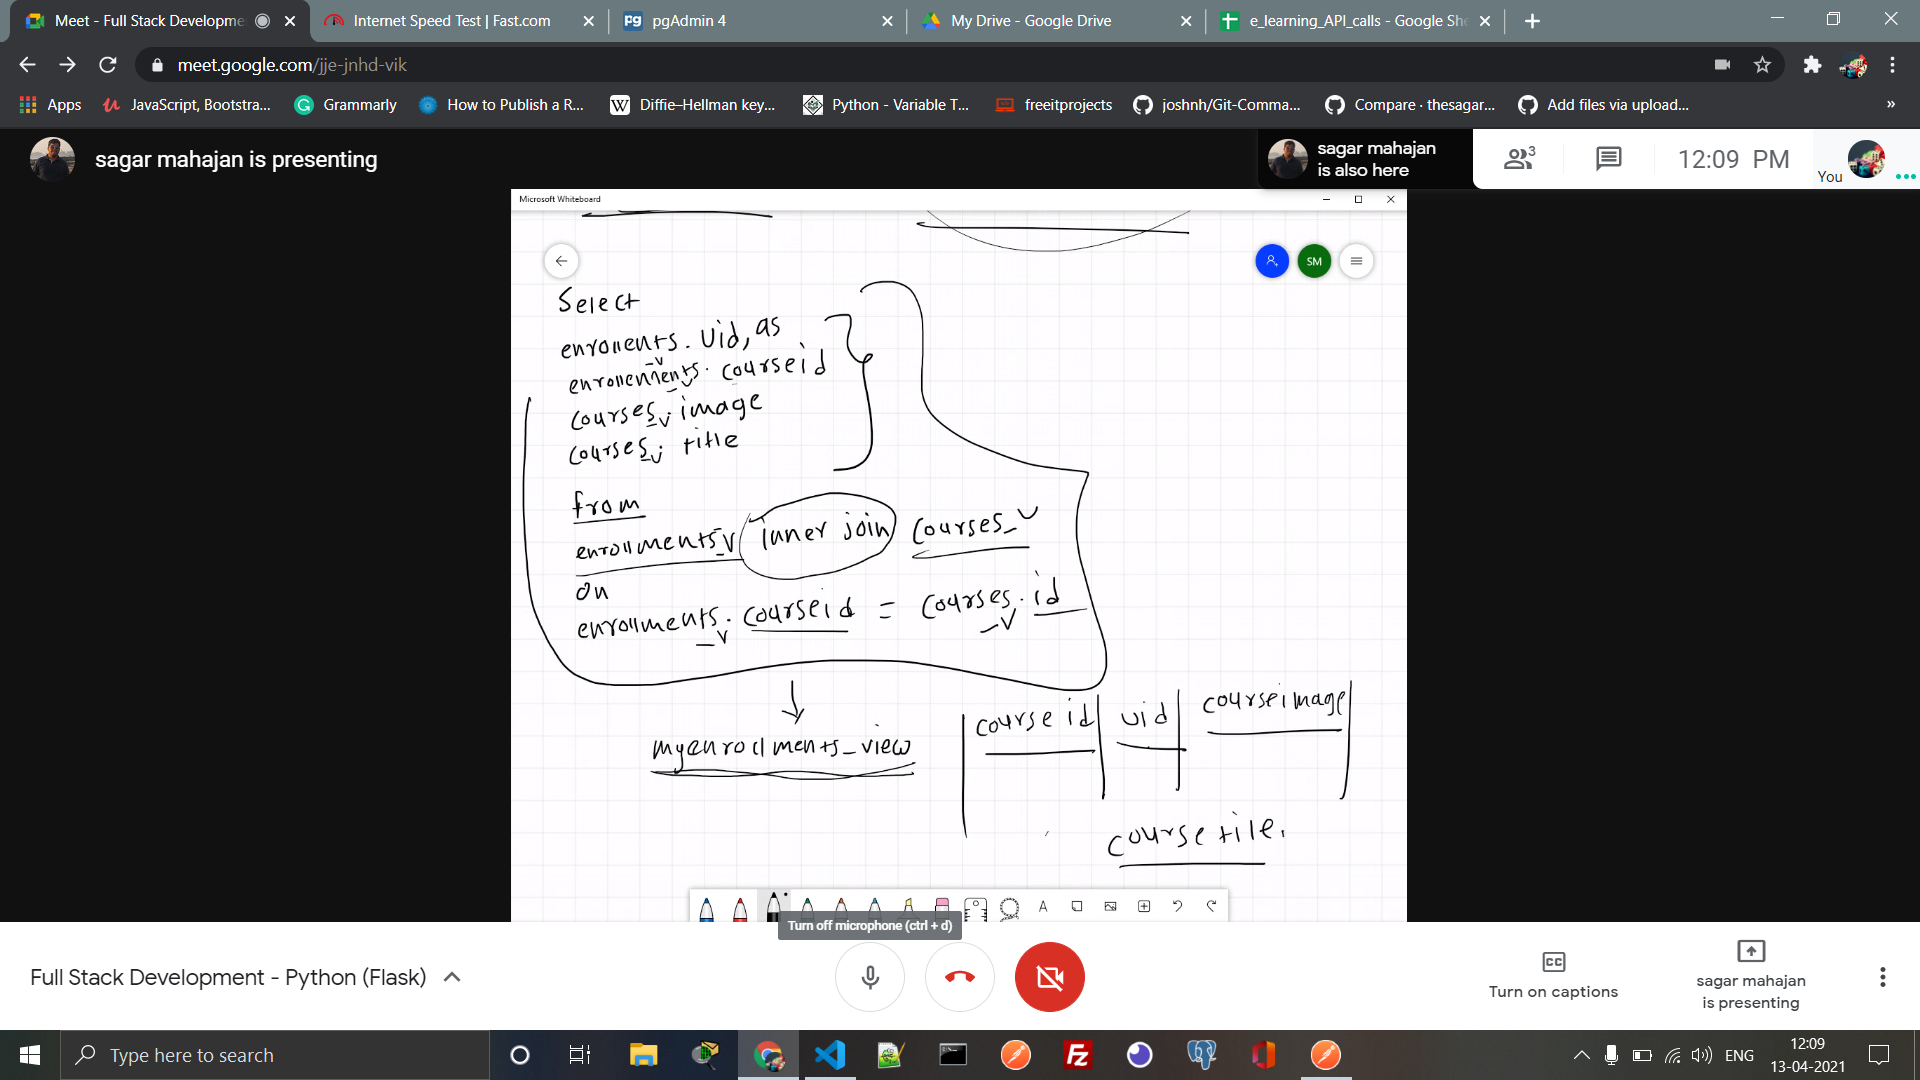 Meet - Full Stack Developme
Internet Speed Test | Fast.com
pgAdmin 4
My Drive - Google Drive
e_learning_API_calls - Google She
meet.google.com/jje-jnhd-vik
Apps
JavaScript, Bootstra...
Grammarly
How to Publish a R...
Diffie–Hellman key...
Python - Variable T...
freeitprojects
joshnh/Git-Comma...
Compare · thesagar...
Add files via upload...
»
sagar mahajan is presenting
sagar mahajan
is also here
3
12:09 PM
You
Microsoft Whiteboard
SM
Select
enrollents_v. Uid, as
enrollenments_v. courseid
courses_v. image
courses_v. title
from
enrollments_v inner join courses_v
on
enrollments_v. courseid = courses_v. id
myenrollments_view
course id | uid | courseimage
course tile.
Turn off microphone (ctrl + d)
Full Stack Development - Python (Flask)
CC
Turn on captions
sagar mahajan
is presenting
Type here to search
ENG
12:09
13-04-2021